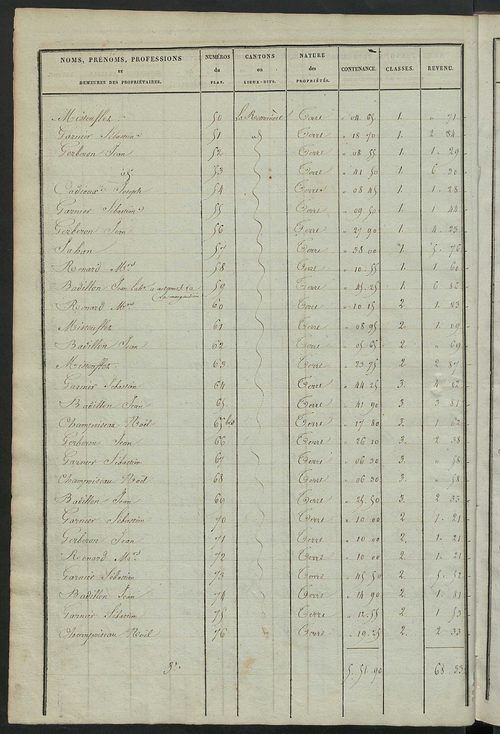 NOMS, PRÉNOMS, PROFESSIONS ET DEMEURES DES PROPRIÉTAIRES. NUMÉROS du PLAN. CANTONS ou LIEUX-DITS. NATURE des PROPRIÉTÉS. CONTENANCE. CLASSES. REVENU.
50 Terre " 04 05 1. " 71
Garnier Sébastien 51 Terre " 18 70 1. 2 84
Gerberon Jean 52 Terre " 08 55 1. 1 29
53 Terre " 41 50 1. 6 30
Joseph 54 Terre " 08 45 1. 1 28
Garnier Sébastien 55 Terre " 09 50 1. 1 44
Gerberon Jean 56 Terre " 27 90 1. 4 23
57 Terre " 38 00 1. 5 76
Renard 58 Terre " 10 55 1. 1 60
Badillon Jean 59 Terre " 45 25 1. 6
Renard 60 Terre " 10 15 2. 1 83
61 Terre " 08 95 2. 1 09
Badillon Jean 62 Terre " 05 65 2. " 69
63 Terre " 23 75 2 2 87
Garnier Sébastien 64 Terre " 44 25 3. 4
Badillon Jean 65 Terre " 41 90 3. 3 81
Champoiseau Noël 65 bis Terre " 17 80 3. 1 62
Gerberon Jean 66 Terre " 26 10 3. 2 38
Garnier Sébastien 67 Terre " 06 30 3. " 58
Champoiseau Noël 68 Terre " 06 30 3. " 58
Badillon Jean 69 Terre " 25 50 3. 2 33
Garnier Sébastien 70 Terre " 10 00 2. 1. 21
Gerberon Jean 71 Terre " 10 00 2. 1. 21
Renard 72 Terre " 10 00 2. 1. 21
Garnier Sébastien 73 Terre " 45 50 2. 5. 52
Badillon Jean 74 Terre " 14 90 2. 1. 81
Garnier Sébastien 75 Terre " 12. 55 2 1 53
Champoiseau Noël 76 Terre " 19. 25 2. 2 33
5. 51. 90 68. 33